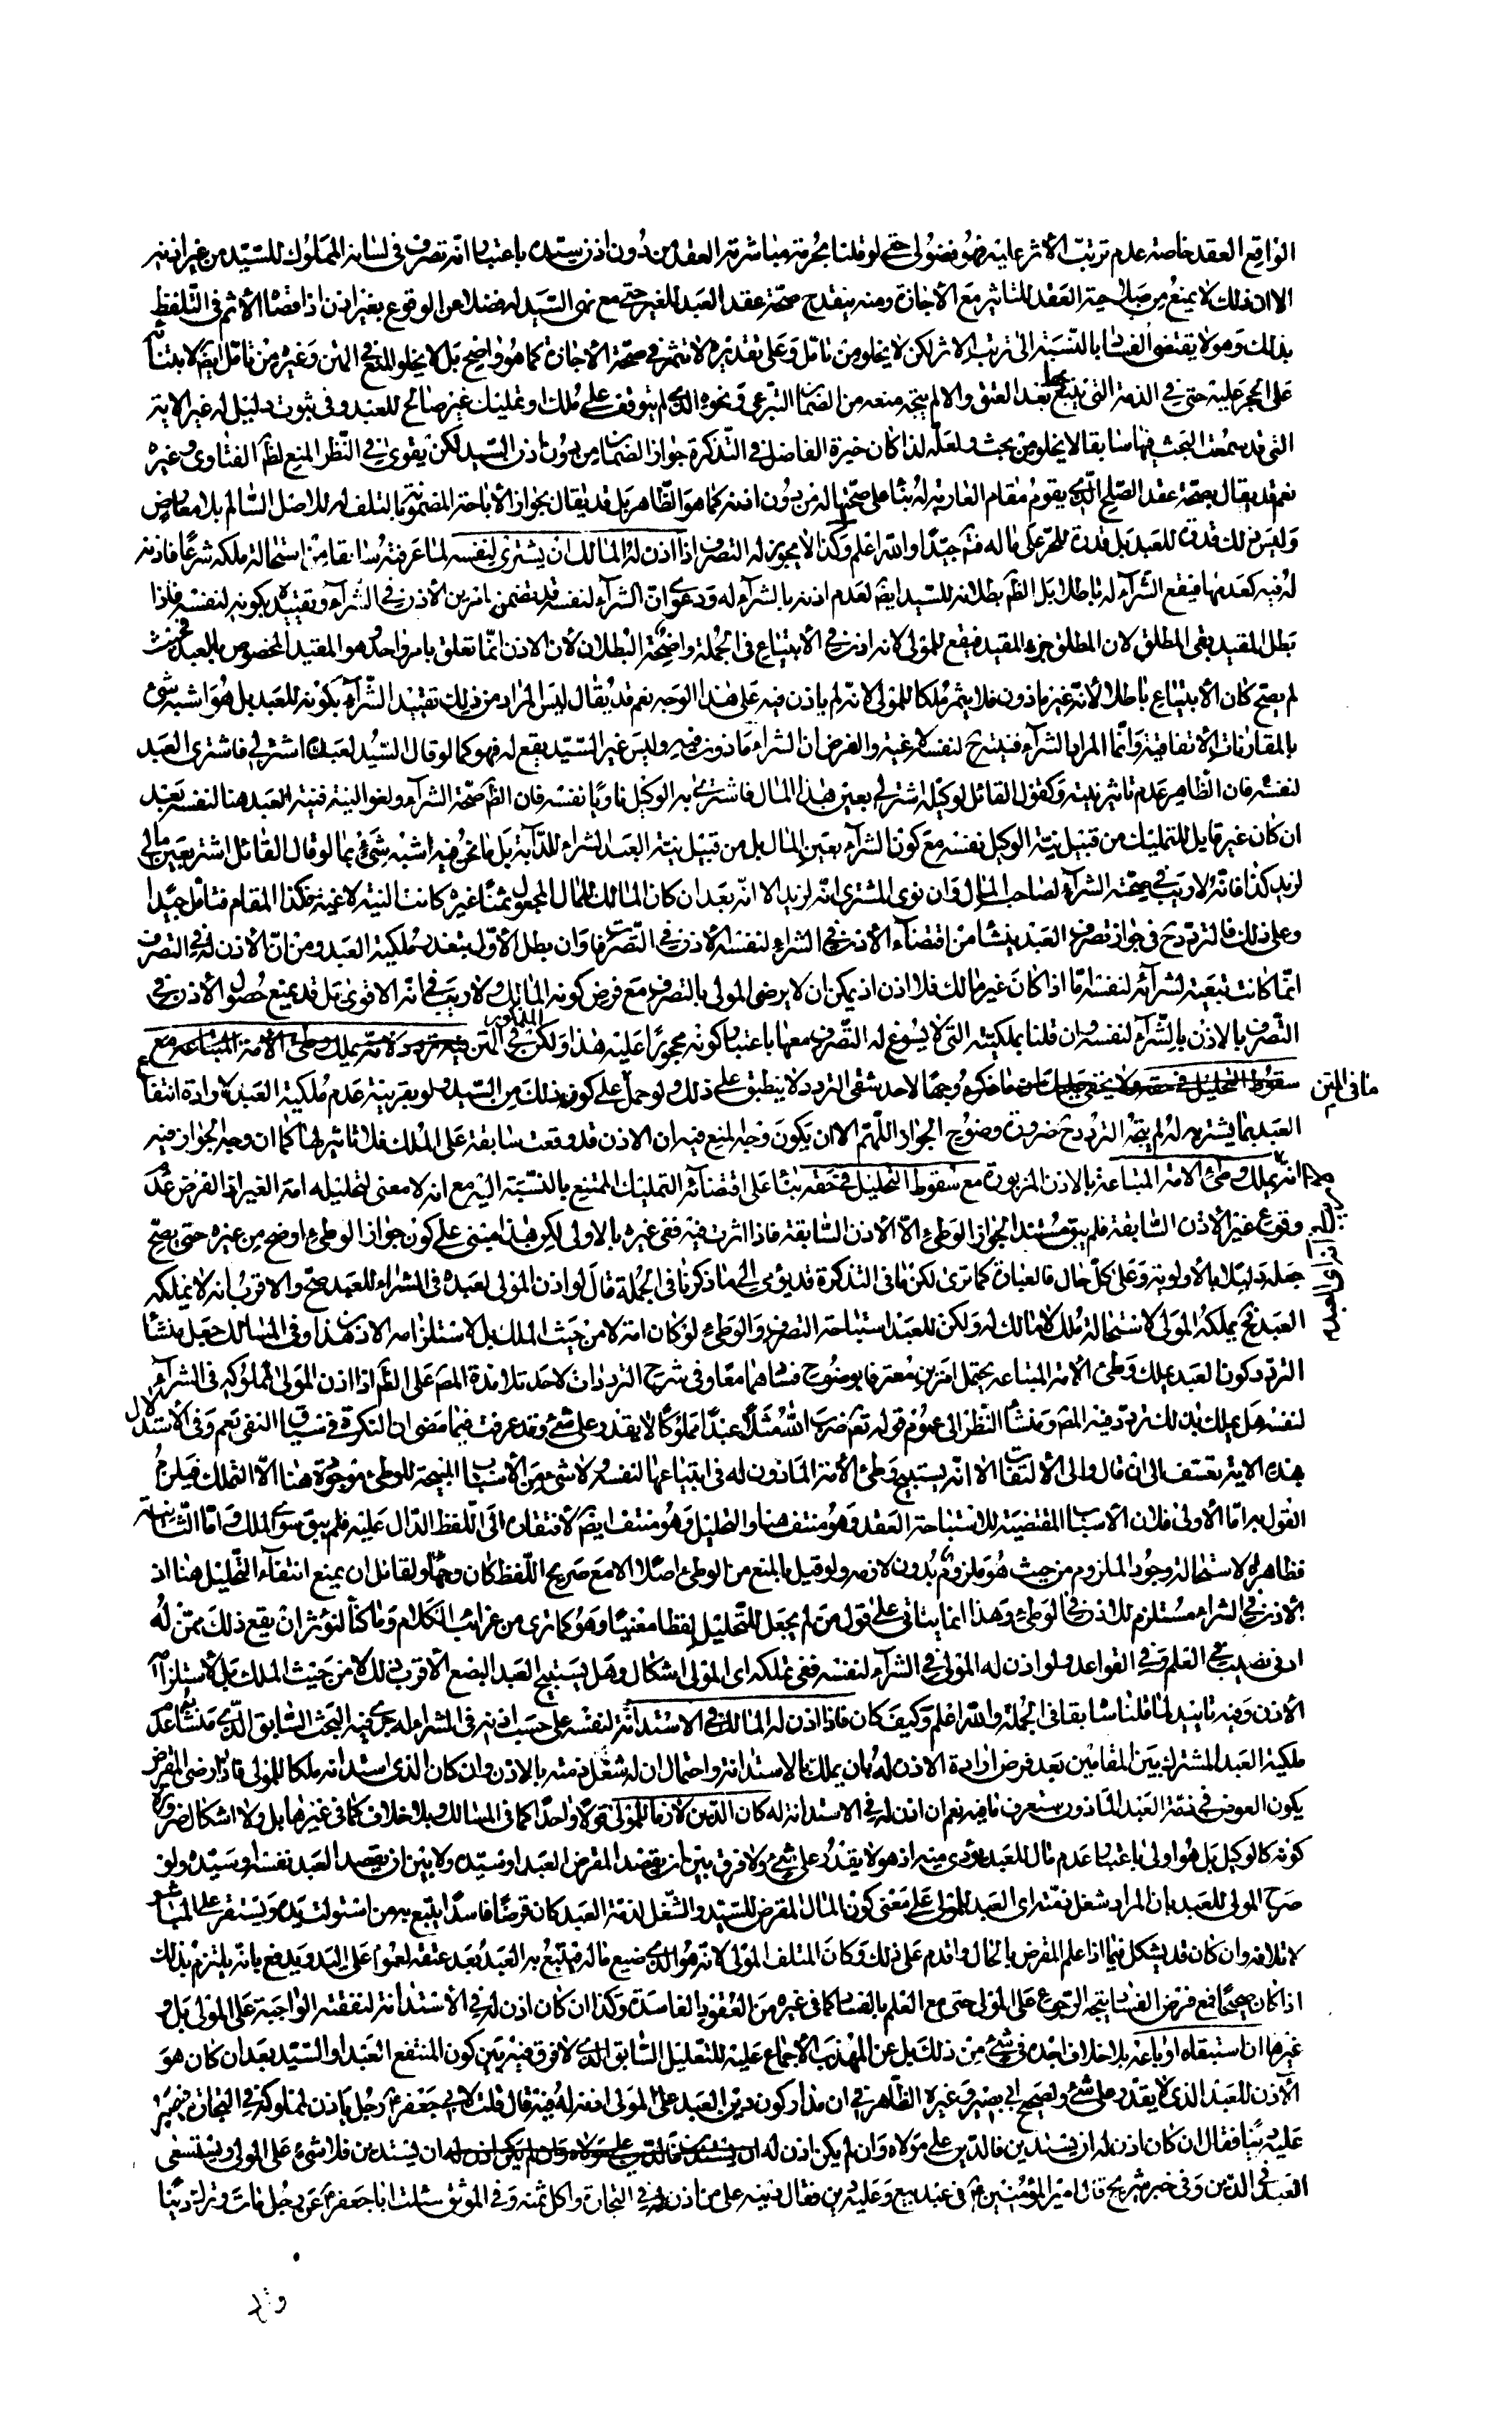 الواقع العقد خاصة عدم ترتب الأثر عليه فهو فضولي حتى لو قلنا بحرمة مباشرته العقد من دون اذن سيّده باعتبار انّه تصرف في لسانه المملوك للسيّد من غير اذنه
الا ان ذلك لا يمنع من صلاحية العقد للتاثير مع الأجازة ومنه ينقدح صحّة عقد العبد للغير حتى مع نهى السّيد له فضلا عن الوقوع بغير اذن اذ اقصاه الأثم في التّلفظ
بذلك وهو لا يقتضي الفساد بالنّسبة الى ترتب الاثر لكن لا يخلو من تامّل وعلى تقديره لا تثمر في صحّة الأجازة كما هو واضح بل لا يخلو المنع في المتن وغيره من تامّل ايضا لابتنائه
على الحجر عليه حتى في الذمة التي يتبع بها بعد العتق والا لم يتجه منعه من الضمان التبرعي ونحوه الذي لم يتوقف على ملك او تمليك غير صالح للعبد وفي ثبوت دليل له غير الاية
التي قد سمعت البحث فيها سابقا لا يخلو من بحث ولعلّه لذا كان خيرة الفاضل في التّذكرة جواز الضمان من دون اذن السيد لكن يقوى في النّظر المنع لظ الفتاوى وغيره
نعم قد يقال بصحّة عقد الصّلح الذي يقوم مقام العارية له بناء على صحّتها له من دون اذنه كما هو الظّاهر بل قد يقال بجواز الأباحة المضمونة بالتلف له للاصل السّالم بلا معارض
وليس ذلك قدرة للعبد بل قدرة للحر على ماله فتم جيّدا واللّه اعلم وكذا لا يجوز له التصرف اذا اذن له المالك ان يشتري لنفسه لما عرفته سابقا من استحالة ملكه شرعا فاذنه
له فيه كعدمها فيقع الشّراء له باطلا بل الظّ بطلانه للسّيد ايضا لعدم اذنه بالشراء له ودعوى انّ الشراء لنفسه قد تضمن امرين الأذن في الشراء وتقييده بكونه لنفسه فاذا
بطل المقيد بقى المطلق لان المطلق جزء المقيد فيقع للمولى لانه اذن في الأبتياع في الجملة واضحة البطلان لأن الاذن انّما تعلق بامر واحد هو المقيد المخصوص بالعبد فحيث
لم يصح كان الأبتياع باطلا لأنّه غير ماذون فلا يثمر ملكا للمولى لانّه لم ياذن فيه على هذا الوجه نعم قد يقال ليس المراد من ذلك تقييد الشّراء بكونه للعبد بل هو اشبه شئ
بالمقارنات الاتفاقية وانّما المراد الشراء فنيته ح لنفسه لاغية والفرض ان الشراء ماذون فيه وليس غير السّيد يقع له فهو كما لو قال السّيد لعبده اشتر لي فاشترى العبد
لنفسه فان الظّاهر عدم تاثير نيته وكقول القائل لوكيله اشتر لي بعين هذا المال فاشترى به الوكيل ناويا نفسه فان الظّ صحّة الشراء ولغو النية فنية العبد هنا لنفسه بعد
ان كان غير قابل للتمليك من قبيل نيّة الوكيل نفسه مع كون الشراء بعين المال بل من قبيل نية العبد الشراء للدّابة بل ما نحن فيه اشبه شئ بما لو قال القائل اشتر بعين مالي
لزيد كذا فانّه لا ريب في صحّة الشراء لصاحب المال وان نوى المشترى انّه لزيد الا انّه بعد ان كان المالك للمال المجعول ثمنا غيره كانت النية لاغية فكذا المقام فتامّل جيّدا
وعلى ذلك فالتردد ح في جواز تصرف العبد ينشا من اقتضاء الأذن في الشراء لنفسه الاذن في التّصرف وان بطل الأوّل بتعذر ملكية العبد ومن انّ الاذن له في التصرف
انما كانت تبعية لشرائه لنفسه امّا اذا كان غير مالك فلا اذن اذ يمكن ان لا يرضى المولى بالتصرف مع فرض كونه المالك ولا ريب في انه الاقوى بل قد يمنع حصول الأذن في
التّصرف بالاذن بالشراء لنفسه وان قلنا بملكيته التي لا يسوغ له التّصرف معها باعتبار كونه محجورا عليه هذا ولكن في المتن المذكور
ما في المتن وجها لاحد شقى التردد لا ينطبق على ذلك ولو حمل على كون ذلك من السّيد ولو بقرينة عدم ملكية العبد لارادة انتفاع
العبد بما يشتريه له لم يتجه التردد ح ضرورة وضوح الجواز اللّهمّ الا ان يكون وجه المنع فيه ان الاذن قد وقعت سابقة على الملك فلا تاثير لها كما ان وجه الجواز فيه
انّه يملك وطئ الامة المبتاعة بالاذن المزبورة مع سقوط التحليل في حقه بناء على اقتضائه التمليك الممتنع بالنّسبة اليه مع انه لا معنى لتحليله امة الغير اذ الفرض عدم
وقوع غير الأذن السّابقة فلم يبق مستند الجواز الوطئ الا الأذن السّابقة فاذا اثرت فيه ففي غيره بالاولى لكن هذا مبنى على كون جواز الوطئ اوضح من غيره حتى يصحّ
جعله دليلا بالأولوية وعلى كلّ حال فالعبارة كما ترى لكن ما في التذكرة قد يؤمى الى ما ذكرنا في الجملة قال لو اذن المولى لعبده في الشراء للعبد صح والاقرب انه لا يملكه
العبد فح يملكه المولى لاستحالة ملك لا مالك له ولكن للعبد استباحة التصرف والوطئ لو كان امة لا من حيث الملك بل لاستلزامه الاذن هذا وفي المسالك جعل منشأ
التردد كون العبد يملك وطئ الامة المبتاعة يحتمل امرين معترفا بوضوح فسادهما معا وفي شرح الترددات لاحد تلامذة المص على الظّ اذا اذن المولى لمملوكه في الشراء
لنفسه هل يملك بذلك تردد فيه المص ومنشأ النّظر الى عموم قوله تعالى ضرب اللّه مثلا عبدا مملوكا لا يقدر على شئ وقد عرفت فيما مضى ان النكرة في سياق النفي تعم وفي الأستدلال
بهذه الاية تعسف الى ان قال والى الألتفات الا انّه يستبيح وطئ الأمة الماذون له في ابتياعها لنفسه ولا شئ من الأسباب المبيحة للوطئ موجودة هنا الّا التملك فيلزم
القول به امّا الأولى فلان الأسباب المقتضية للاستباحة العقد وهو منتف هنا والتحليل وهو منتف ايضا لأفتقاره الى اللّفظ الدّال عليه فلم يبق سوى الملك وامّا الثّانية
فظاهرة لاستحالة وجود الملزوم من حيث هو ملزوم بدون لازمه ولو قيل بالمنع من الوطئ اصلا الا مع صريح اللّفظ كان وجها ولقائل ان يمنع انتفاء التّحليل هنا اذ
الأذن في الشراء مستلزم للاذن في الوطئ وهذا انما يتاتى على قول من لم يجعل للتّحليل لفظا معينا وهو كما ترى من غرائب الكلام وما كنّا لنؤثر ان يقع ذلك ممّن له
ادنى نصيب في العلم وفي القواعد ولو اذن له المولى في الشراء لنفسه ففي تملكه اي المولى اشكال وهل يستبيح العبد البضع الأقرب ذلك لا من حيث الملك بل لأستلزامه
الأذن وفيه تاييد لما قلنا سابقا في الجملة واللّه اعلم وكيف كان فاذا اذن له المالك في الاستدانة لنفسه على حسب اذنه في الشراء له جرى فيه البحث السّابق الذّي منشأه عدم
ملكية العبد المشترك بين المقامين بعد فرض ارادة الاذن له بان يملك بالاستدانة واحتمال ان له شغل ذمته بالاذن وان كان الذي استدانه ملكا للمولى فاذا رضى المقرض
يكون العوض في ذمة العبد الماذون ستعرف ما فيه نعم ان اذن له في الاستدانة له كان الدّين لازما للمولى قولا واحدا كما في المسالك وبلا خلاف كما في غيرها بل ولا اشكال ضرورة
كونه كالوكيل بل هو اولى باعتبار عدم مال للعبد يؤدى منه اذ هو لا يقدر على شئ ولا فرق بين ان يقصد المقرض العبد او سيّده ولا بين ان يقصد العبد نفسه او سيّده ولو
صرح المولى للعبد بان المراد شغل ذمّته اي العبد للمولى على معنى كون المال المقرض للسّيّد والشّغل لذمّة العبد كان قرضا فاسدا يتبع به من استولت يده ويستقر على المباشر
لاتلافه وان كان قد يشكل فيما اذا علم المقرض بالحال واقدم على ذلك وكان المتلف المولى لانّه هو الذي ضيع ماله فيتبع به العبد بعد عتقه لعموم على اليد ويدفع بانّه يلتزم بذلك
اذا كان صحيحا فمع فرض الفساد يتجه الرّجوع على المولى حتى مع العلم بالفساد كما في غيره من العقود الفاسدة وكذا ان كان اذن له في الأستدانة لنفقته الواجبة على المولى بل و
غيرها ان استبقاه او باعه بلا خلاف اجده في شئ من ذلك بل عن المهذب الأجماع عليه للتعليل السّابق الذي لا فرق فيه بين كون المنتفع العبد او السّيّد بعد ان كان هو
الآذن للعبد الذي لا يقدر على شئ ولصحيح ابي بصير وغيره الظّاهر في ان مدار كون دين العبد على المولى اذنه له فيه قال قلت لابي جعفر ع رجل ياذن لمملوكه في التجارة فيصير
عليه دين فقال ان كان اذن له ان يستدين فالدّين على مولاه وان لم يكن اذن له ان يستدين فلا شئ على المولى ويستسعى
العبد في الدّين وفي خبر شريح قال امير المؤمنين ع في عبد بيع وعليه دين فقال دينه على من اذن له في التجارة واكل ثمنه وفي الموثق سئلت ابا جعفر ع عن رجل مات وترك دينا